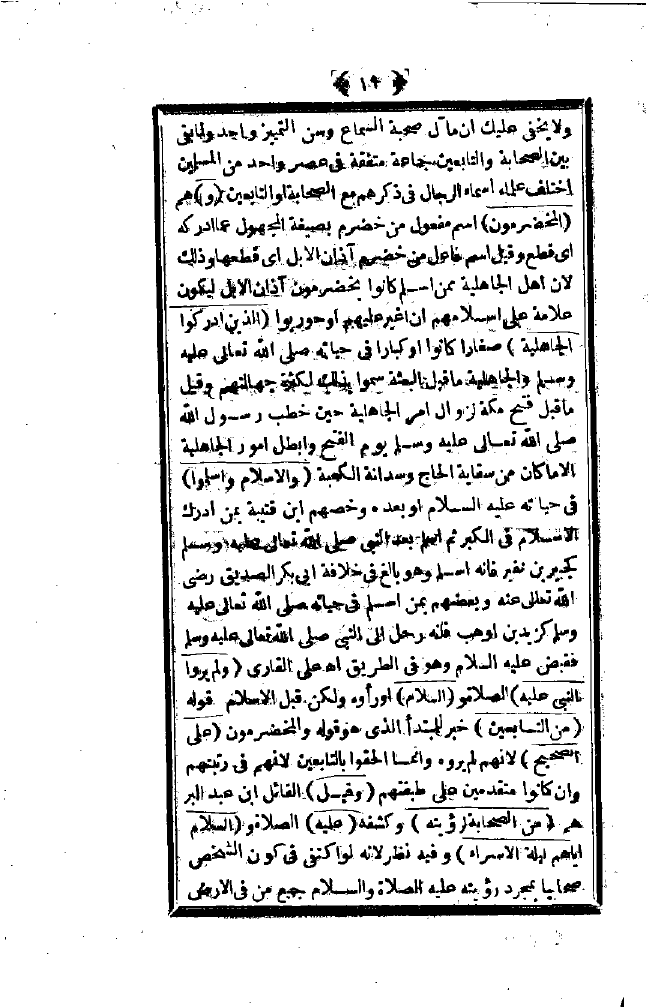 ١٣
ولا يخفى عليك ان مآل صحبة السماع وسن التمييز واحد ولما بقى
بين الصحابة والتابعين جماعة متفقة فى عصر واحد من المسلمين
اختلف علماء اسماء الرجال فى ذكرهم مع الصحابة او التابعين (و) هم
(المخضرمون) اسم مفعول من خضرم بصيغة المجهول عما ادركه
اى قطع وقيل اسم فاعل من خضرم آذان الابل اى قطعها وذلك
لان اهل الجاهلية ممن اسلم كانوا يخضرمون آذان الابل ليكون
علامة على اسلامهم ان اغير عليهم او حوربوا (الذين ادركوا
الجاهلية) صغارا كانوا او كبارا فى حياته صلى الله تعالى عليه
وسلم والجاهلية ماقبل البعثة سموا بذلك لكثرة جهالتهم وقيل
ماقبل فتح مكة لزوال امر الجاهلية حين خطب رسول الله
صلى الله تعالى عليه وسلم يوم الفتح وابطل امور الجاهلية
الا ماكان من سقاية الحاج وسدانة الكعبة (والاسلام واسلموا)
فى حياته عليه السلام او بعده وخصهم ابن قتيبة بمن ادرك
الاسلام فى الكبر ثم اسلم بعد النبى صلى الله تعالى عليه وسلم
كجبير بن نفير فانه اسلم وهو بالغ فى خلافة ابى بكر الصديق رضى
الله تعالى عنه وبعضهم بمن اسلم فى حياته صلى الله تعالى عليه
وسلم كزيد بن اوهب فانه رحل الى النبى صلى الله تعالى عليه وسلم
فقبض عليه السلام وهو فى الطريق اه على القارى (ولم يروا
النبى عليه) الصلاة و (السلام) او رأوه ولكن قبل الاسلام قوله
(من التابعين) خبر للمبتدأ الذى هو قوله والمخضرمون (على
الصحيح) لانهم لم يروه وانما الحقوا بالتابعين لانهم فى رتبتهم
وان كانوا متقدمين على طبقتهم (وقيل) القائل ابن عبد البر
هم (من الصحابة لرؤيته) وكشفه (عليه) الصلاة و (السلام
اياهم ليلة الاسراء) وفيه نظر لانه لو اكتفى فى كون الشخص
صحابيا بمجرد رؤيته عليه الصلاة والسلام جميع من فى الارض